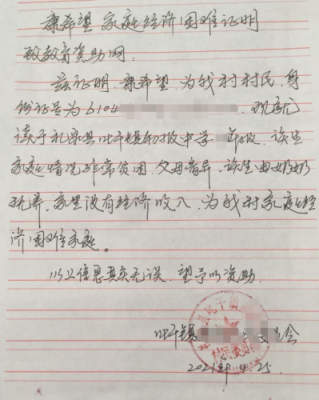 康希望 家庭经济困难证明
致教育资助网.
兹证明 康希望 为我村村民,身
份证号为6104 现就
读于礼泉县叱干镇初级中学 年级,该生
家庭情况非常贫困,父母离异,该生由奶奶
抚养,家里没有经济收入,为我村家庭经
济困难家庭。
以上信息真实无误,望予以资助.
叱干镇 会
2021年4.25